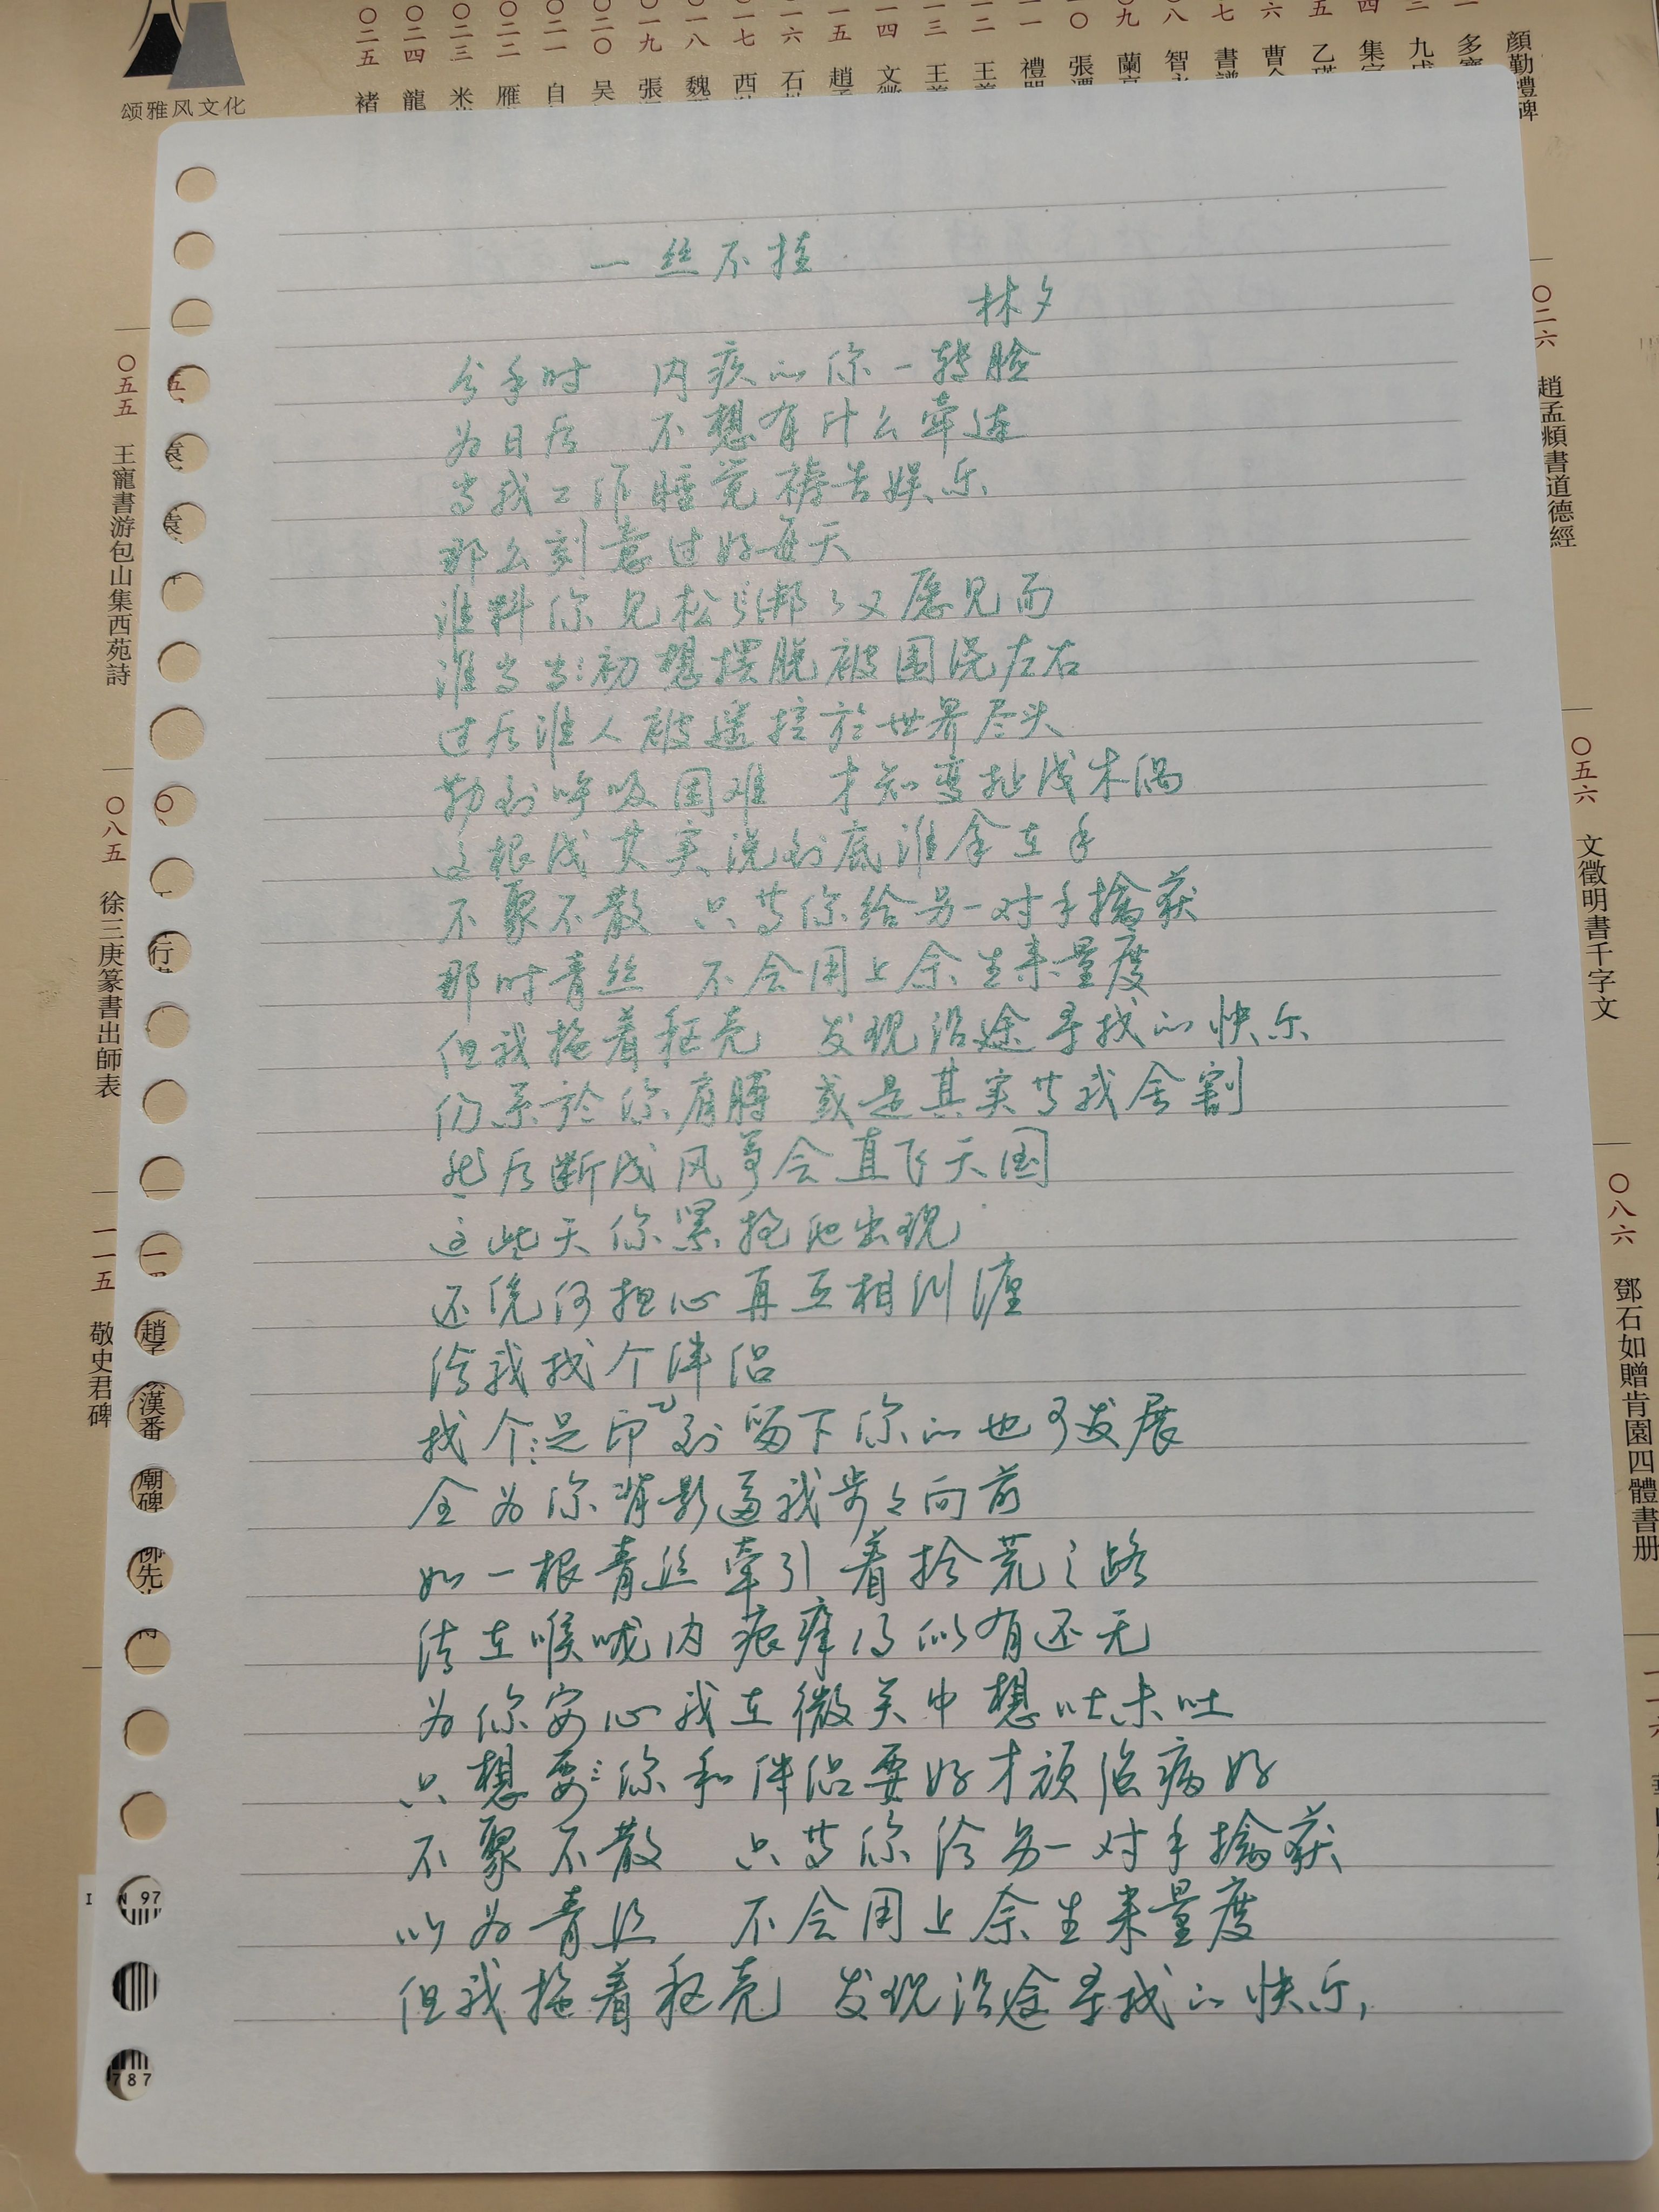 颂雅风文化
〇二五 褚
〇二四 龍
〇二三 米
〇二二 雁
〇二一 自
〇二〇 吴
〇一九 張
〇一八 魏
〇一七 西
一六 石
一五 趙
一四 文徵
一三 王羲
一二 王羲
一一 禮器
一〇 張遷
九 蘭亭
八 智永
七 書譜
六 曹全
五 乙瑛
四 集字
九成
多寶
顏勤禮碑
〇二六 趙孟頫書道德經
〇五五 王寵書游包山集西苑詩
〇五六 文徵明書千字文
〇八五 徐三庚篆書出師表
〇八六 鄧石如贈肯園四體書册
一一五 敬史君碑
一丝不挂
林夕
分手时 内疚的你一转脸
为日后 不想有什么牵连
当我工作睡觉祷告娱乐
那么刻意过好每天
谁料你见松绑了又愿见面
谁当当初想摆脱被围绕左右
过后谁人被遥控於世界尽头
勒到呼吸困难 才知变扯线木偶
这根线其实说到底谁拿在手
不聚不散 只等你给另一对手擒获
那时青丝 不会用上余生来量度
但我拖着躯壳 发现沿途寻找的快乐
仍系於你肩膊 或是其实等我舍割
然后断线风筝会直飞天国
这些天你紧抱他出现
还凭何担心再互相纠缠
给我找个伴侣
找个足印到留下你的也可发展
全为你背影逼我步々向前
如一根青丝牵引着拾荒之路
结在喉咙内痕痒得似有还无
为你安心我在微笑中想吐未吐
只想要你和伴侣要好才顽治病好
不聚不散 只等你给另一对手擒获
以为青丝 不会用上余生来量度
但我拖着躯壳 发现沿途寻找的快乐,
N 97
787